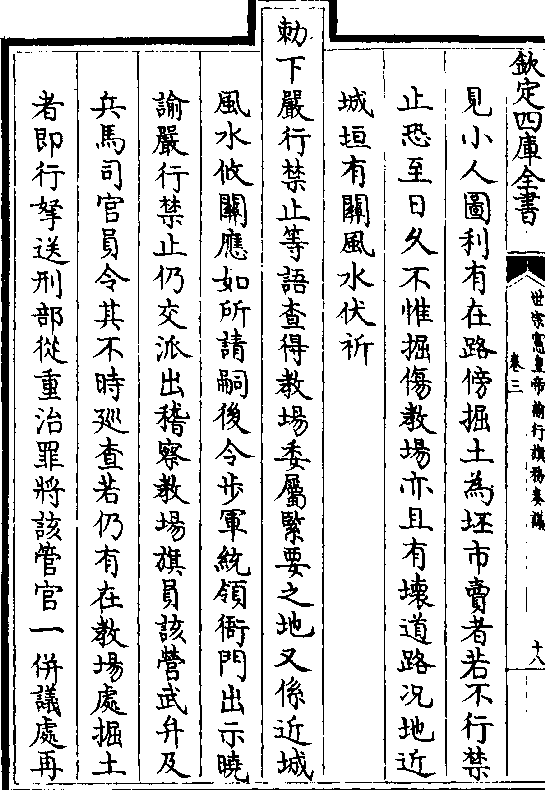 欽定四庫全書
世宗憲皇帝諭行旗務奏議
卷三
十八
見小人圖利有在路傍掘土為坯市賣者若不行禁
止恐至日久不惟掘傷教場亦且有壞道路况地近
城垣有關風水伏祈
勅下嚴行禁止等語查得教場委屬緊要之地又係近城
風水攸關應如所請嗣後令步軍統領衙門出示曉
諭嚴行禁止仍交派出稽察教場旗員該營武弁及
兵馬司官員令其不時廵查若仍有在教場處掘土
者即行拏送刑部從重治罪將該管官一併議處再